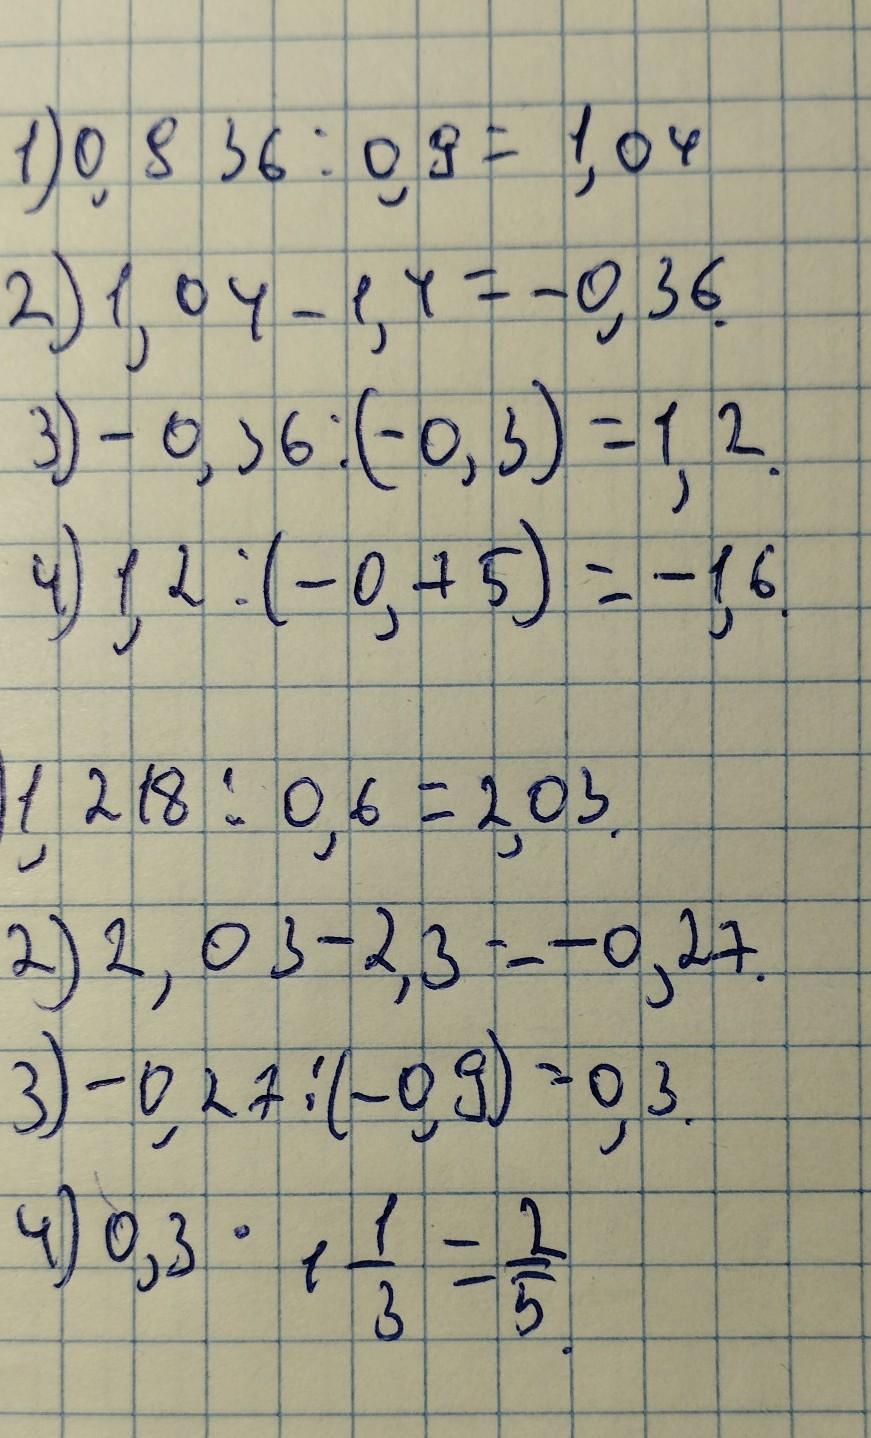 1) 0,936 : 0,9 = 1,04
2) 1,04 - 1,4 = -0,36.
3) -0,36 : (-0,3) = 1,2.
4) 1,2 : (-0,75) = -1,6.
) 1,218 : 0,6 = 2,03.
2) 2,03 - 2,3 = -0,27.
3) -0,27 : (-0,9) = 0,3.
4) 0,3 · 1 1/3 = 2/5.